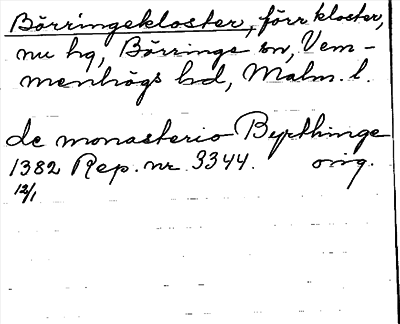 Börringekloster, förr kloster,
nu hg, Börringe sn, Vem-
menhögs hd, Malm. l.
de monasterio Byrthinge
1382 Rep. nr 3344. orig.
12/1